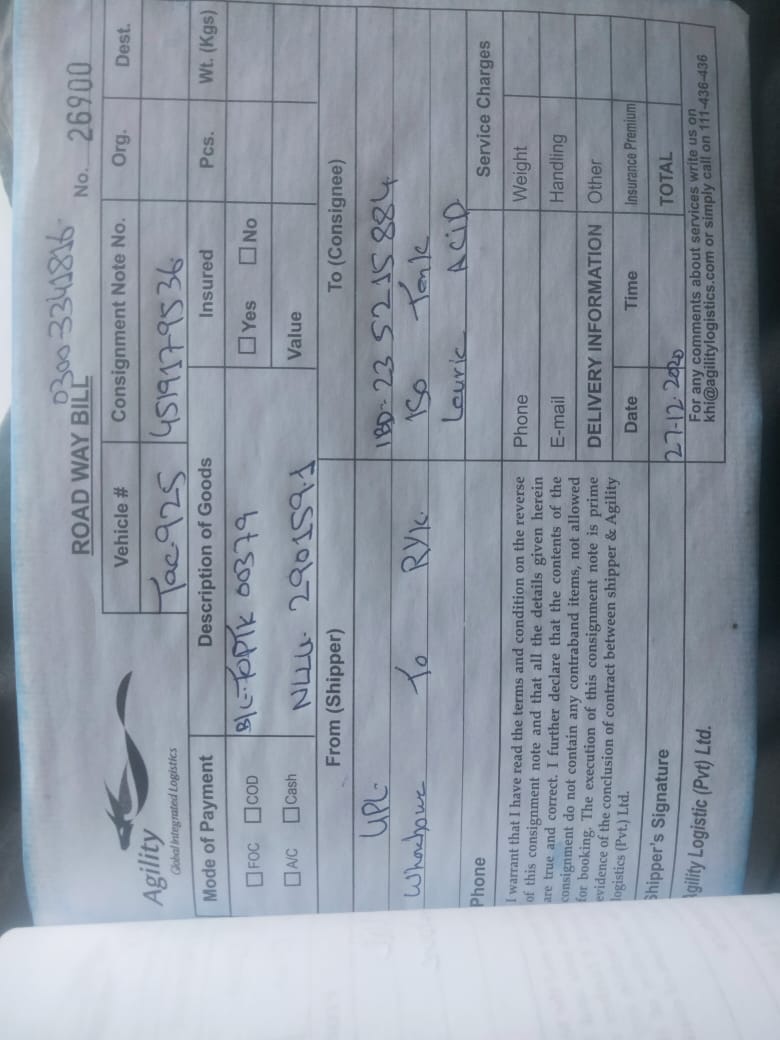 0300-3341816
ROAD WAY BILL
No. 26900
Agility
Global Integrated Logistics
Vehicle #
Consignment Note No.
Org.
Dest.
Tac-925
4519179536
Mode of Payment
Description of Goods
Insured
Pcs.
Wt. (Kgs)
FOC
COD
B/L-TOPTK 00379
Yes
No
A/C
Cash
NLLU- 290159-1
Value
From (Shipper)
To (Consignee)
UPL
IBD-23 5215884
To RYK.
ISO Tank
Lauric ACID
Phone
Service Charges
I warrant that I have read the terms and condition on the reverse
of this consignment note and that all the details given herein
are true and correct. I further declare that the contents of the
consignment do not contain any contraband items, not allowed
for booking. The execution of this consignment note is prime
evidence of the conclusion of contract between shipper & Agility
logistics (Pvt.) Ltd.
Phone
Weight
E-mail
Handling
DELIVERY INFORMATION
Other
Date
Time
Insurance Premium
Shipper's Signature
27-12-2020
TOTAL
Agility Logistic (Pvt) Ltd.
For any comments about services write us on
khi@agilitylogistics.com or simply call on 111-436-436